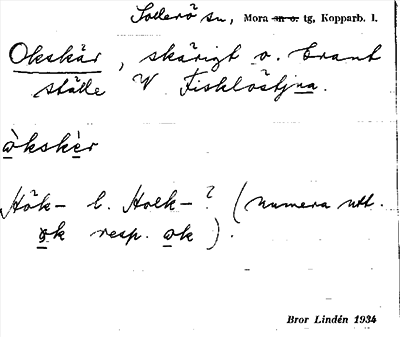 Sollerö sn, Mora sn o. tg, Kopparb. l.
Okskär, skärigt o. brant
ställe V Fisklöstjna.
òkskèr
Hök- l. Holk-? (numera utt.
ok resp. ok).
Bror Lindén 1934